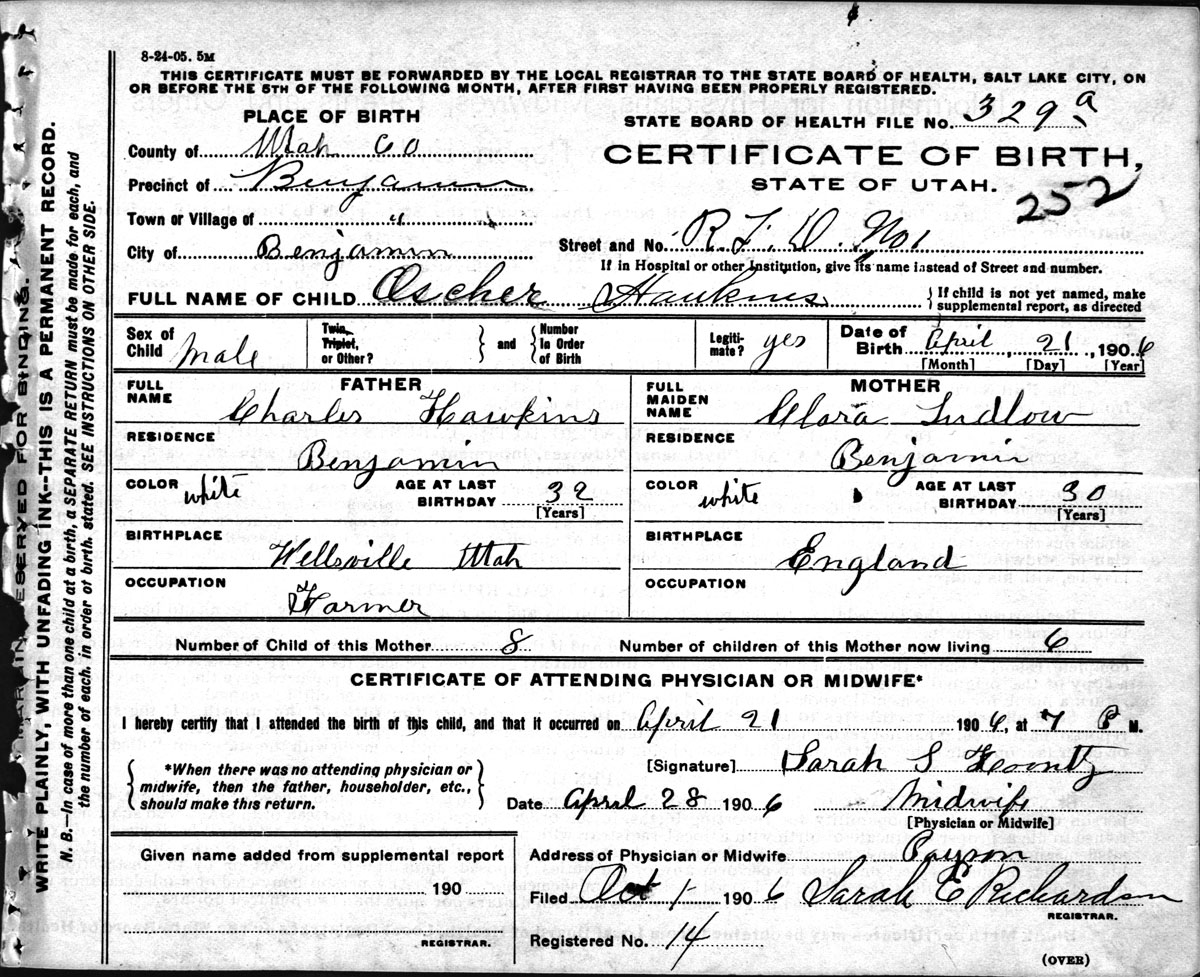 8-24-05. 5M
THIS CERTIFICATE MUST BE FORWARDED BY THE LOCAL REGISTRAR TO THE STATE BOARD OF HEALTH, SALT LAKE CITY, ON
OR BEFORE THE 5TH OF THE FOLLOWING MONTH, AFTER FIRST HAVING BEEN PROPERLY REGISTERED.
PLACE OF BIRTH
STATE BOARD OF HEALTH FILE No. 329 a
County of Utah Co
CERTIFICATE OF BIRTH,
Precinct of Benjamin
STATE OF UTAH.
252
Town or Village of " "
City of Benjamin
Street and No. R. F. D. No 1
If in Hospital or other Institution, give its name instead of Street and number.
FULL NAME OF CHILD Oscher Hawkins
{ If child is not yet named, make
supplemental report, as directed
Sex of Child Male
Twin, Triplet, or Other?
} and {
Number In Order of Birth
Legiti-mate? yes
Date of Birth April, 21, 1906
[Month] [Day] [Year]
FATHER
FULL NAME Charles Hawkins
RESIDENCE Benjamin
COLOR white
AGE AT LAST BIRTHDAY 32
[Years]
BIRTHPLACE Wellsville Utah
OCCUPATION Farmer
MOTHER
FULL MAIDEN NAME Clara Ludlow
RESIDENCE Benjamin
COLOR white
AGE AT LAST BIRTHDAY 30
[Years]
BIRTHPLACE England
OCCUPATION
Number of Child of this Mother 8
Number of children of this Mother now living 6
CERTIFICATE OF ATTENDING PHYSICIAN OR MIDWIFE*
I hereby certify that I attended the birth of this child, and that it occurred on April 21 1906, at 7 P M.
{ *When there was no attending physician or
midwife, then the father, householder, etc.,
should make this return. }
[Signature] Sarah S Koontz
Date April 28 1906
Midwife
[Physician or Midwife]
Given name added from supplemental report
190
REGISTRAR.
Address of Physician or Midwife Payson
Filed Oct 1- 1906 Sarah E Richardson
REGISTRAR.
Registered No. 14
(OVER)
MARGIN RESERVED FOR BINDING.
WRITE PLAINLY, WITH UNFADING INK--THIS IS A PERMANENT RECORD.
N. B.--In case of more than one child at a birth, a SEPARATE RETURN must be made for each, and
the number of each, in order of birth, stated. SEE INSTRUCTIONS ON OTHER SIDE.